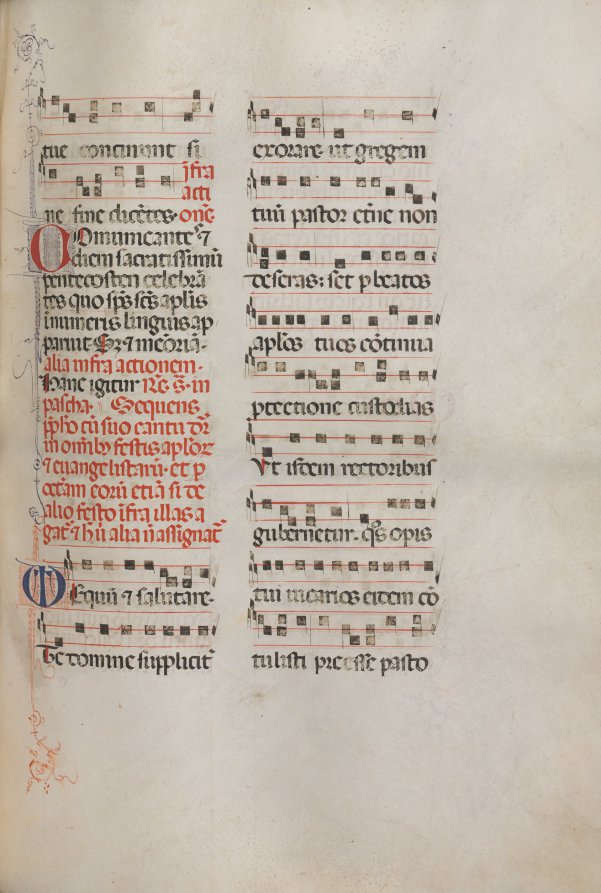 tue continunt si
ifra
acti
ne fine dicētes. onē
Omunicantes ⁊
diem sacratissimū
pentecosten celebrā
tes quo sp̄s sc̄s ap̄lis
īnumeris linguis ap
paruit ⁊ memoriā.
alia infra actionem.
Hanc igitur in
pascha. Sequens
p̄fho cū suo cantu dr̄
in omīb; festis ap̄lor̄
⁊ euangelistarū. et p
octam eorū etiā si de
alio festo īfra illas a
gat̄ ⁊ hn̄ alia n̄ assignat̄
Equū ⁊ salutare.
te domine suppliciṫ
exorare. ut gregem
tuū pastor etn̄e non
deseras: set p beatos
aplōs tuos cōtinua
ptectione custodias
Vt isdem rectoribus
gubernetur. qͦs opis
tui uicarios eidem cō
tulisti preesse pasto